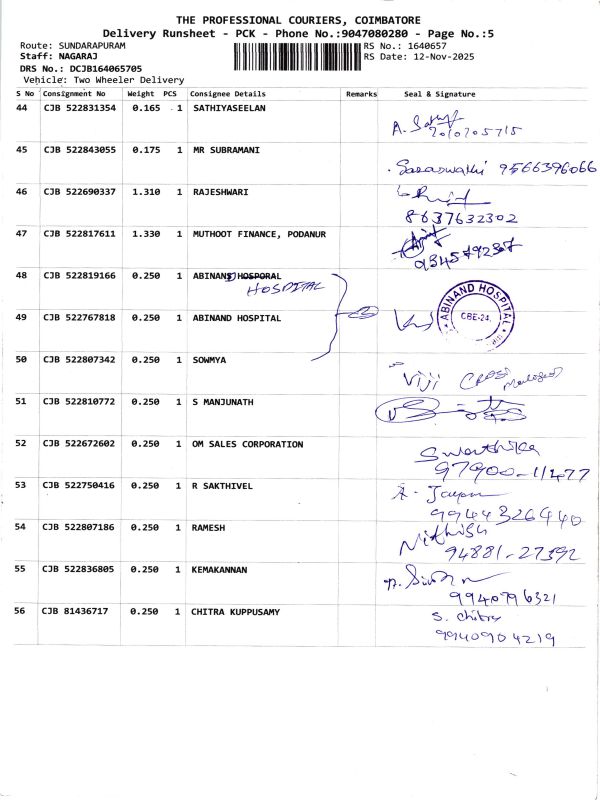 THE PROFESSIONAL COURIERS, COIMBATORE
Delivery Runsheet - PCK - Phone No.:9047080280 - Page No.:5
Route: SUNDARAPURAM RS No.: 1640657
Staff: NAGARAJ RS Date: 12-Nov-2025
DRS No.: DCJB164065705
Vehicle: Two Wheeler Delivery
S No Consignment No Weight PCS Consignee Details Remarks Seal & Signature
44 CJB 522831354 0.165 1 SATHIYASEELAN
45 CJB 522843055 0.175 1 MR SUBRAMANI
Saraswathi 9566396066
46 CJB 522690337 1.310 1 RAJESHWARI
8637632302
47 CJB 522817611 1.330 1 MUTHOOT FINANCE, PODANUR
934579237
48 CJB 522819166 0.250 1 ABINAND HOSPORAL
HOSPITAL
49 CJB 522767818 0.250 1 ABINAND HOSPITAL
ABINAND HOSPITAL
CBE-24.
50 CJB 522807342 0.250 1 SOWMYA
Viji
51 CJB 522810772 0.250 1 S MANJUNATH
52 CJB 522672602 0.250 1 OM SALES CORPORATION
Swathika
97900-11477
53 CJB 522750416 0.250 1 R SAKTHIVEL
9944326440
54 CJB 522807186 0.250 1 RAMESH
Nithish
94881-27392
55 CJB 522836805 0.250 1 KEMAKANNAN
9940796321
56 CJB 81436717 0.250 1 CHITRA KUPPUSAMY
S. Chitra
9940904219